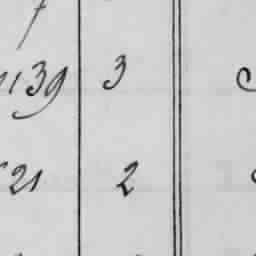 139 3
21 2